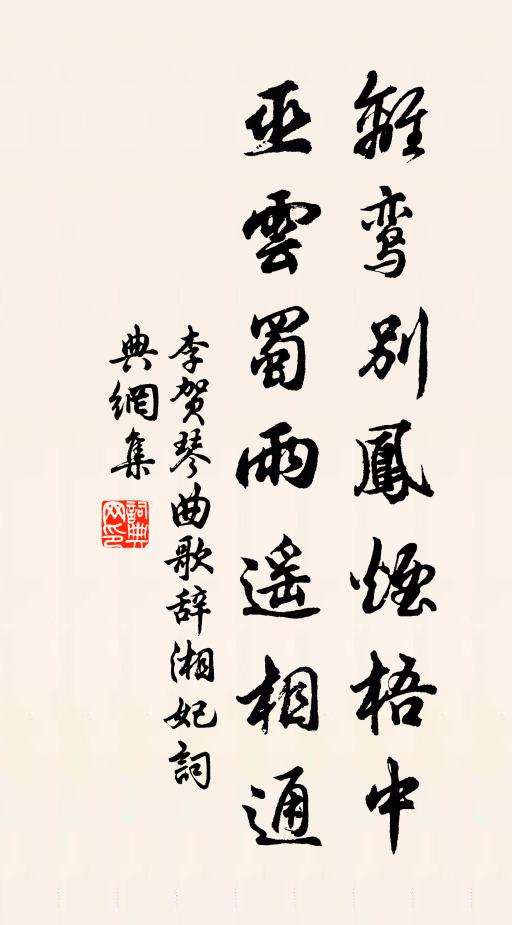 離鸾別鳳煙梧中
巫雲蜀雨遥相通
李贺琴曲歌辞湘妃詞
典網集
詞典网印